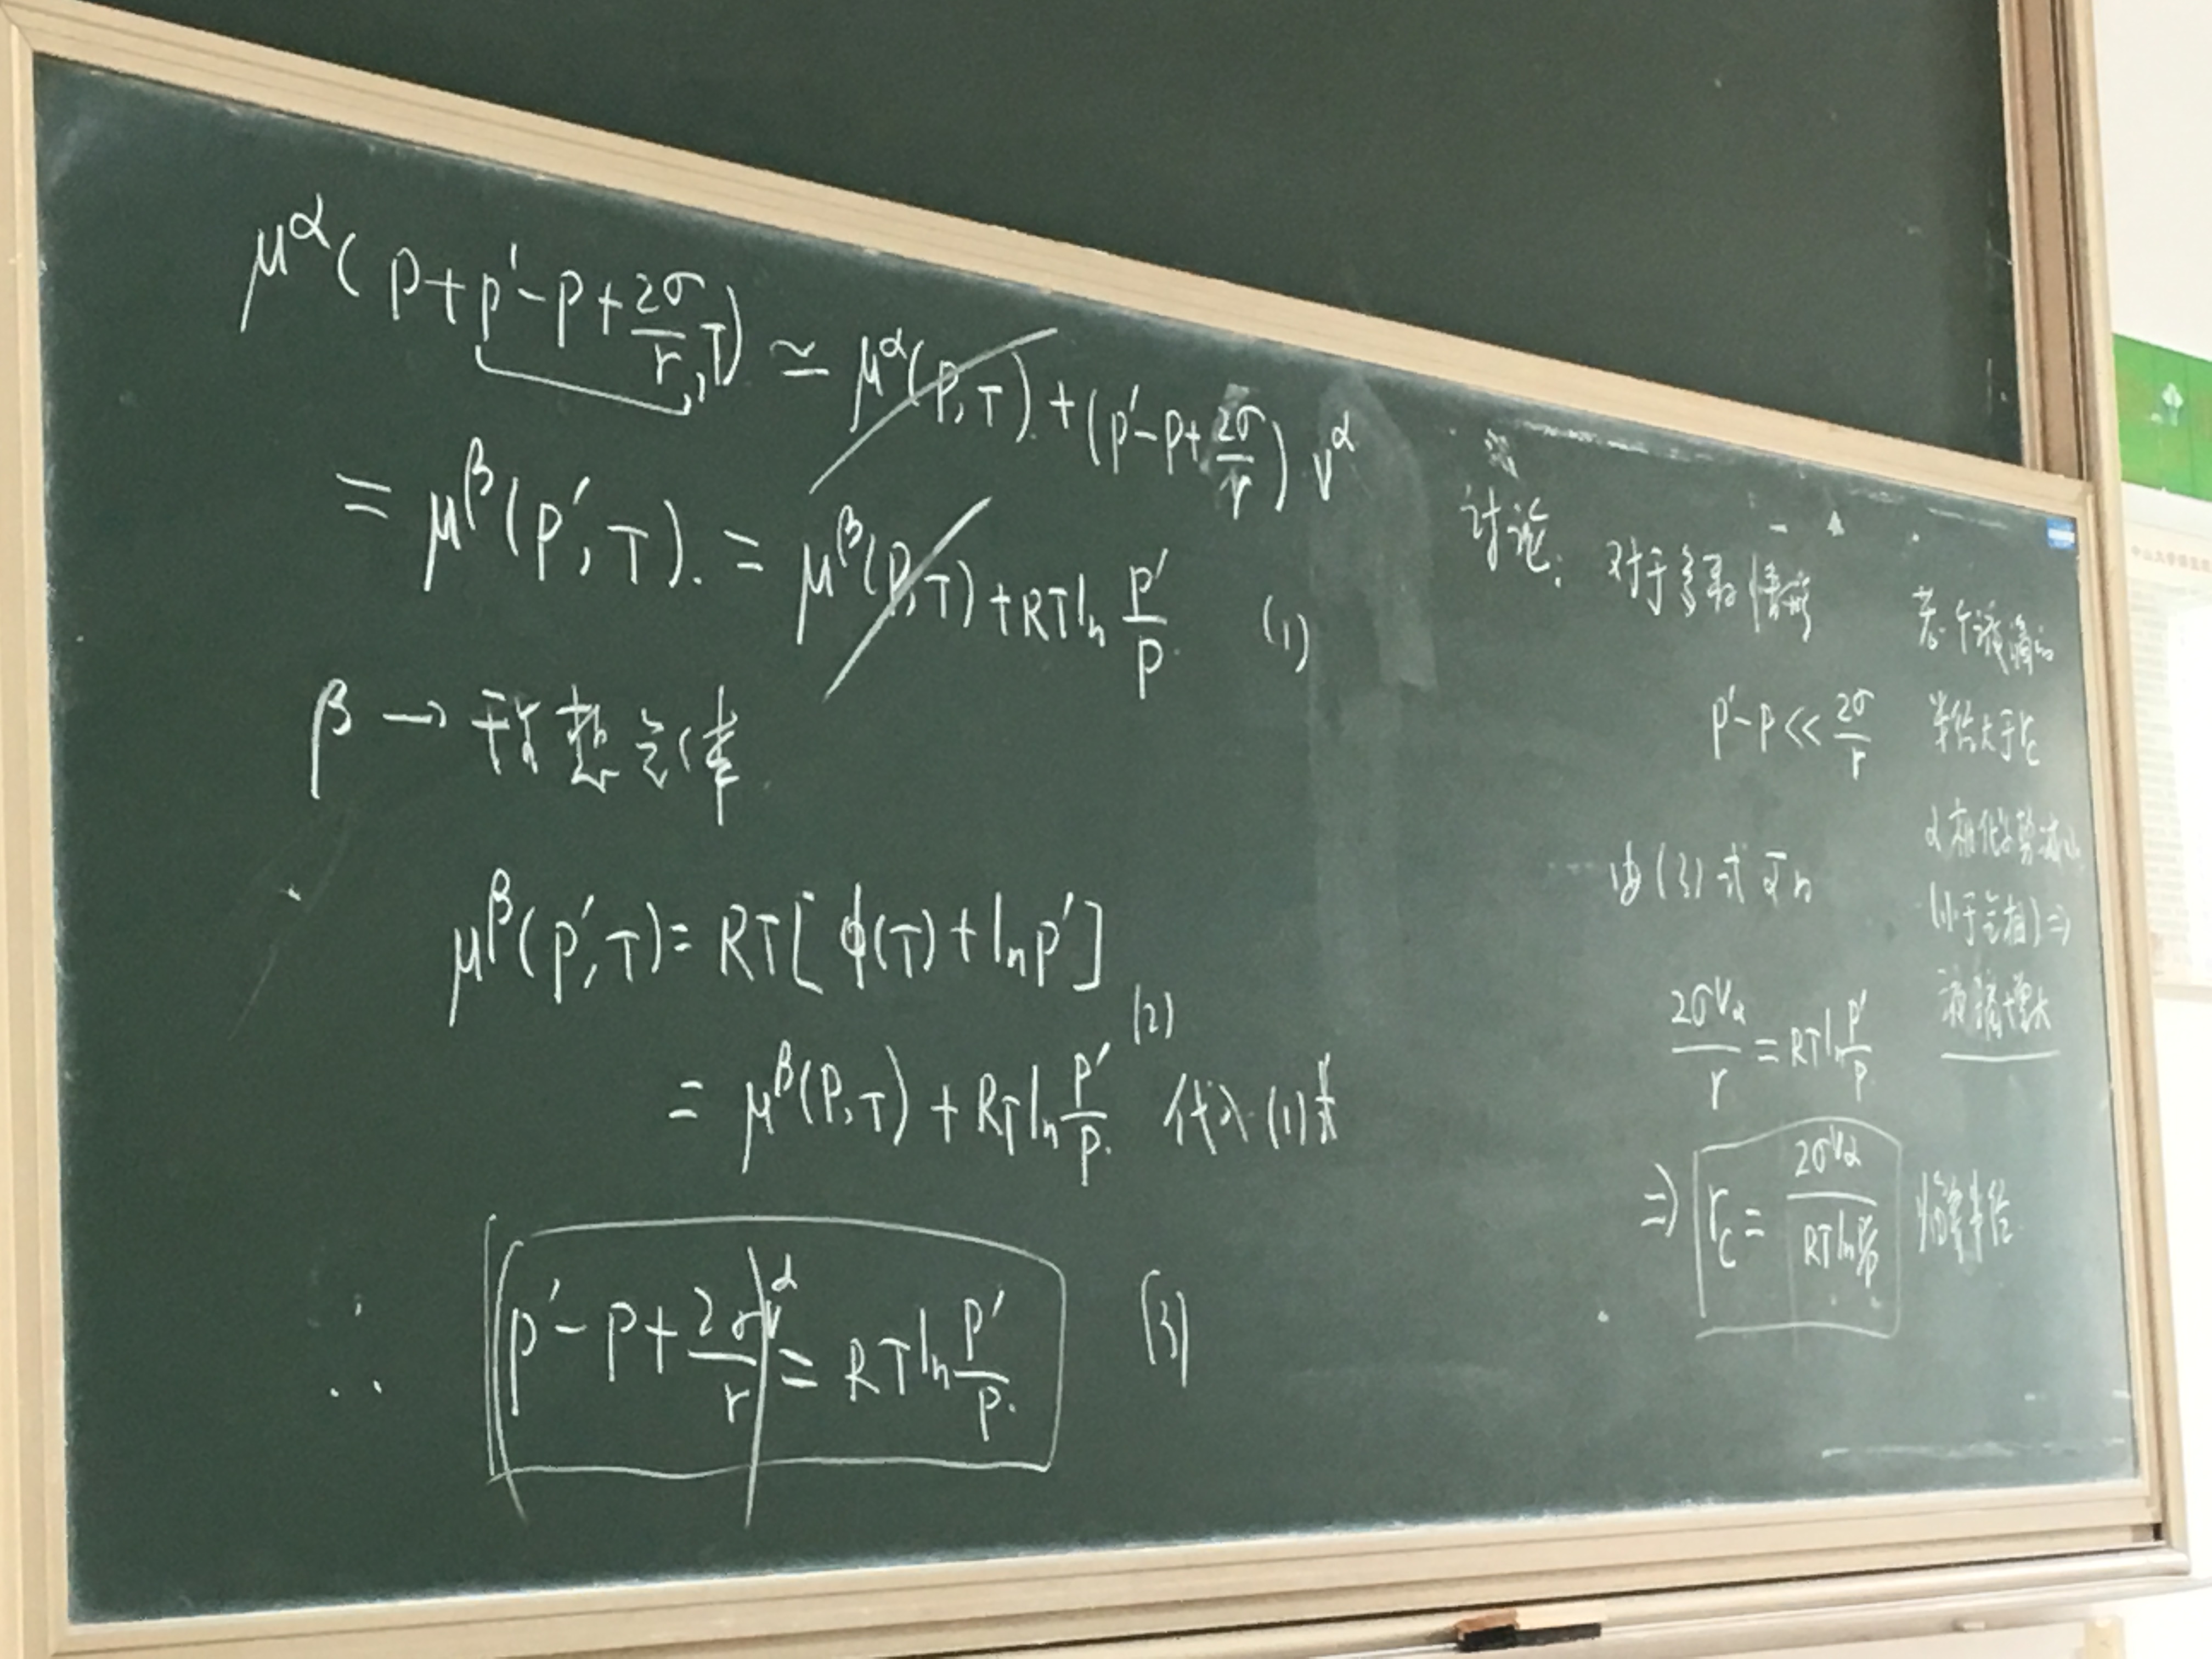 μ^α(p+p'-p+2σ/r,T) ≃ μ^α(p,T)+(p'-p+2σ/r)v^α
=μ^β(p',T).=μ^β(p,T)+RTln p'/p (1)
β→理想气体
μ^β(p',T)=RT[φ(T)+lnp']
(2)
=μ^β(p,T)+RTln p'/p. 代入(1)式
∴ (p'-p+2σ/r)v^α=RTln p'/p. (3)
讨论: 对于多数情形
p'-p≪2σ/r
由(3)式可知
2σv_α/r=RTln p'/p
⇒ r_c=2σv_α/(RTln p'/p) 临界半径
若个液滴的
半径大于r_c
α相化学势减小
(小于气相)⇒
液滴增大